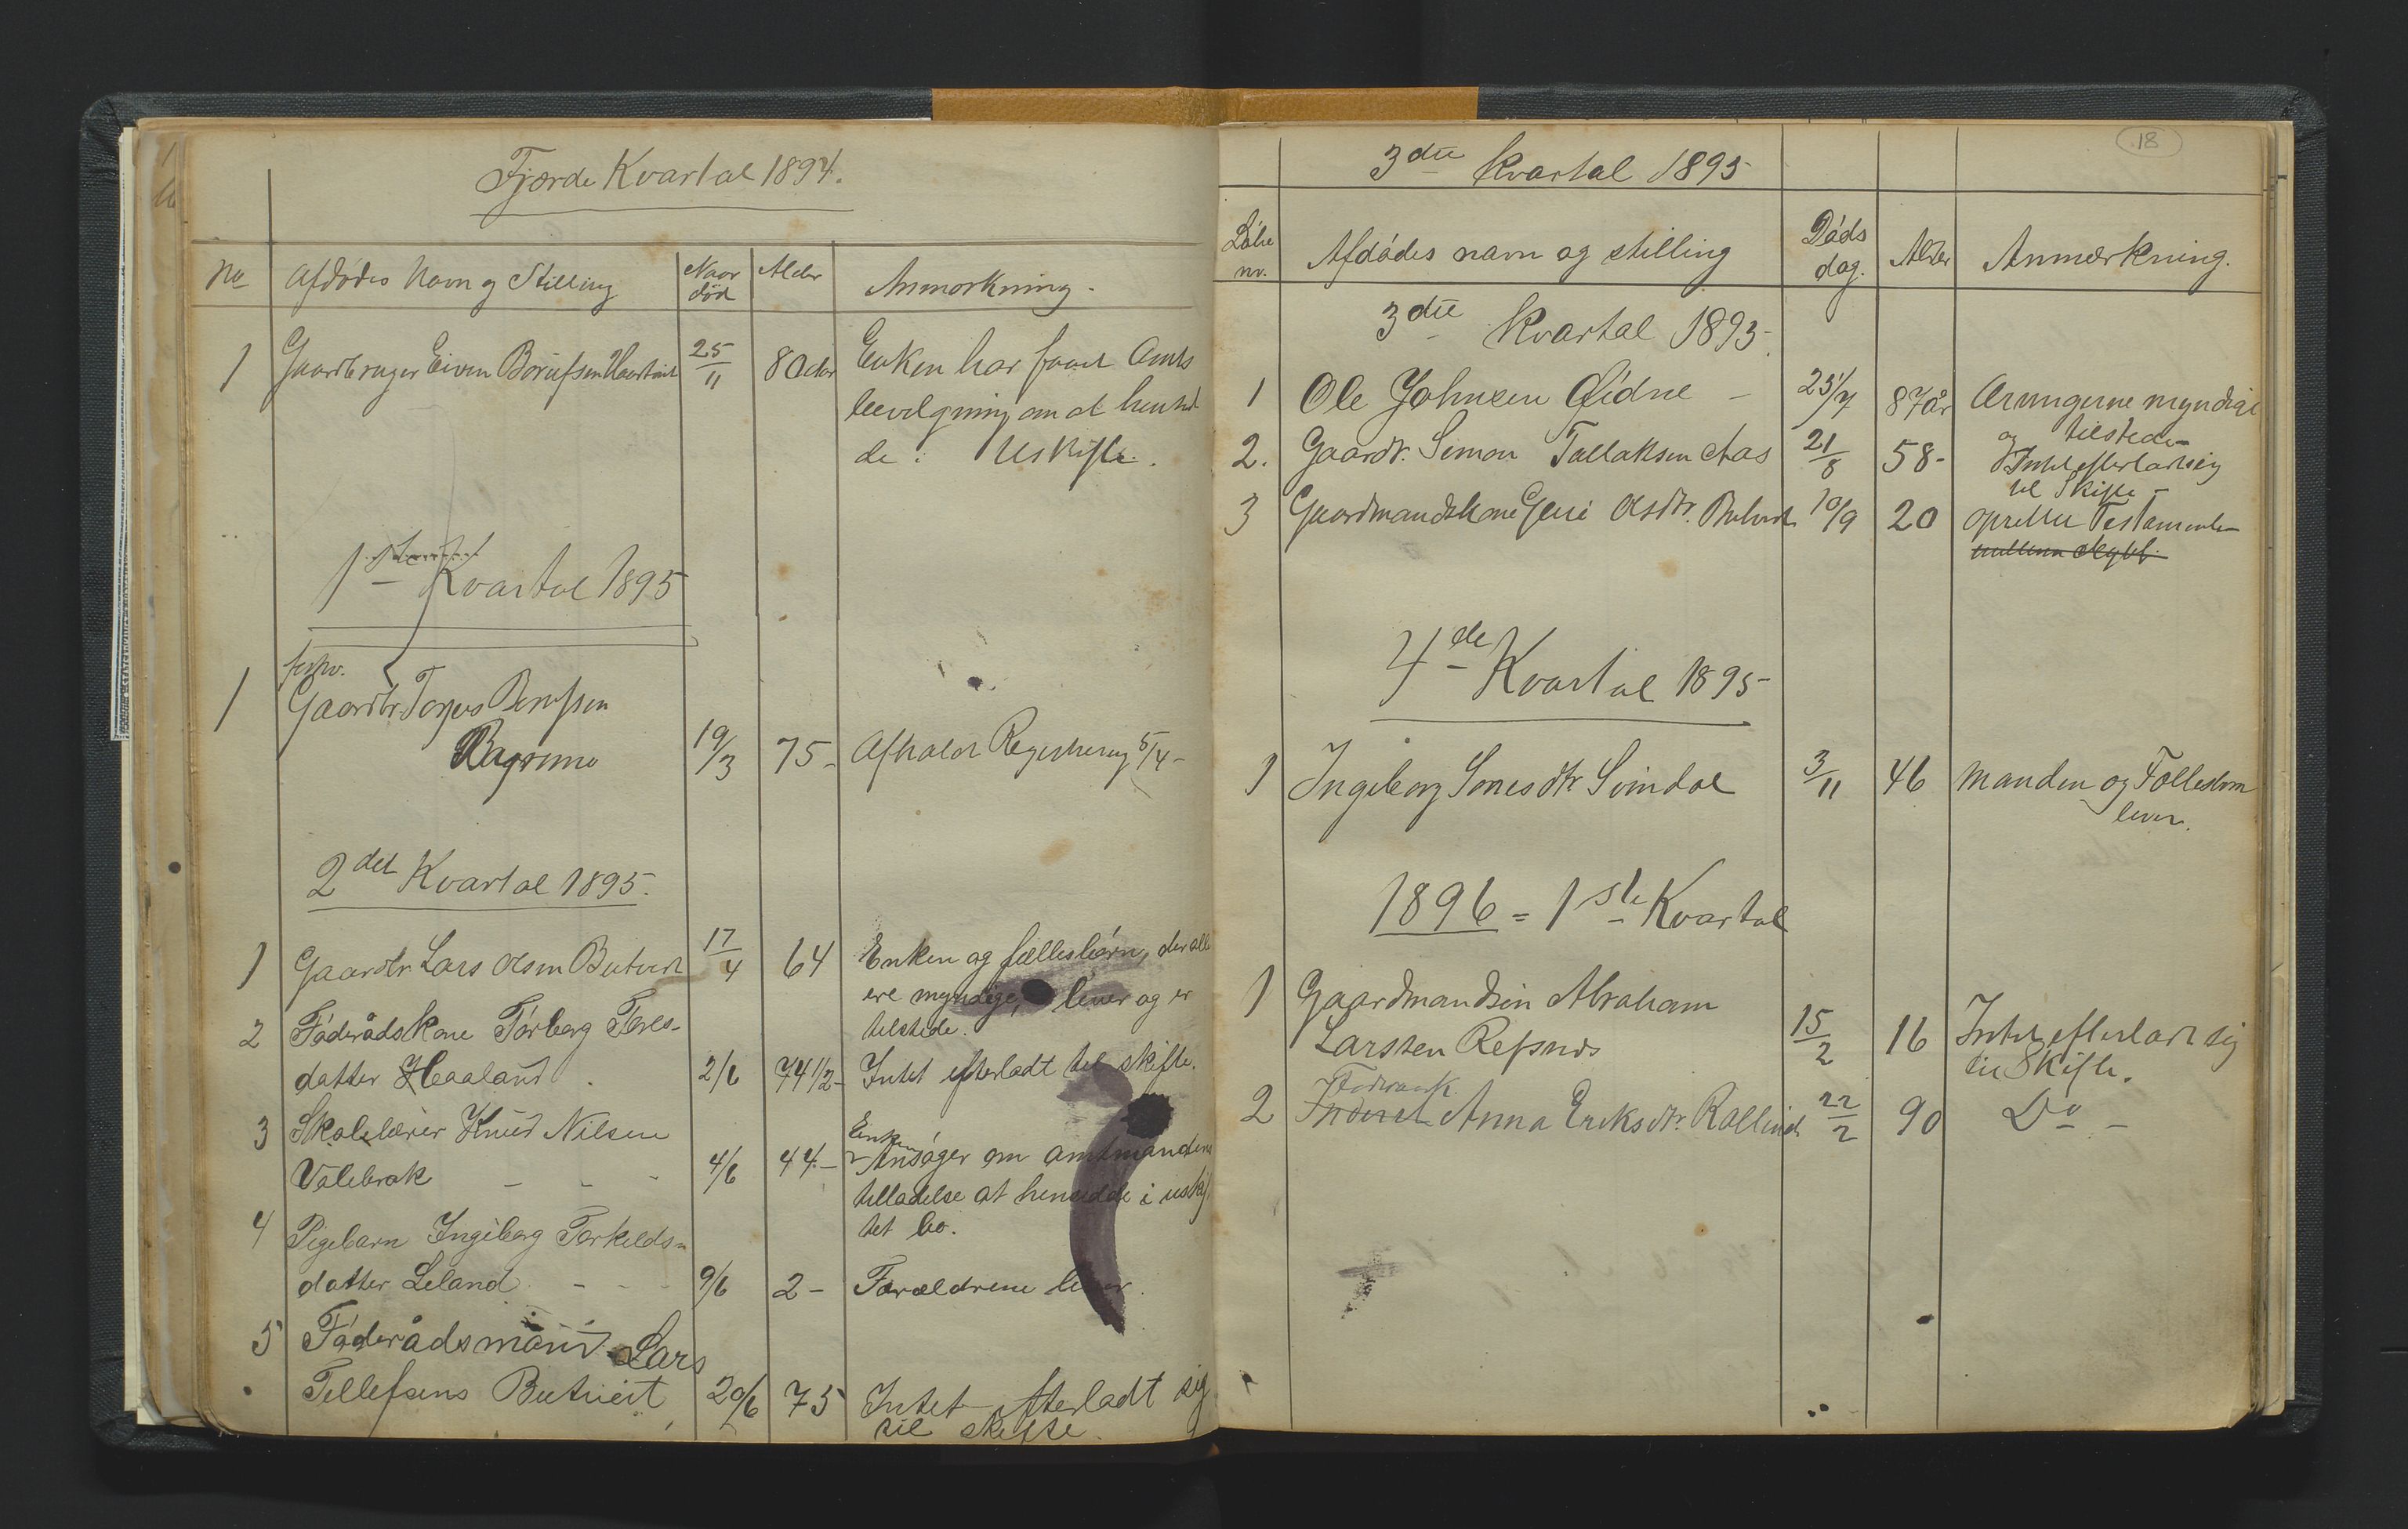 Fjærde Kvartal 1894.
No
Afdødes Navn og Stilling
Naar død
Alder
Anmærkning.
1
Gaardbruger Eiven
25/11
80 Aar
Enken har faaet Amts
bevilgning om at hensid
de i Uskifte.
1ste Kvartal 1895
1
Gaardbr.
19/3
75-
Afholdt Registrering 5/4-
2det Kvartal 1895.
1
Gaardbr Lars Olsen Butveit
17/4
64
Enken og fællesbørn, der alle
ere myndige, lever og er
tilstede.
2
Föderådskone Torborg Tores-
datter Haaland.
2/6
74 1/2-
Intet efterladt til skifte.
3
Skolelærer Knud Nilsen
Valebrok - - -
4/6
44-
Enken
Ansøger om amtmandens
tilladelse at hensidde i uskif
tet bo.
4
Pigebarn Ingeborg Torkelds-
datter Leland - - -
9/6
2-
Forældrene lever.
5
Föderådsmand Lars
Tellefsens Butveit
20/6
75
Intet efterladt sig
til skifte.
18
3die kvartal 1895
Löbe nr.
Afdødes navn og stilling
Døds dag.
Alder
Anmærkning.
3die Kvartal 1895.
1
Ole Johnsen Øidne -
25/7
87 år
Arvingerne myndige
og tilstede-
2.
Gaardbr. Simon Tallaksen Aas
21/8
58-
Intet efterladt sig
til Skifte-
3
Gaardmandskone Olsdtr. Butveit
10/9
20
oprettet Testamente
4de Kvartal 1895
1
Ingeborg Svindal
3/11
46
Manden og Fællesbørn
lever.
1896 = 1ste Kvartal
1
Gaardmandsøn Abraham
Larssen Refsnes
15/2
16
Intet efterladt sig
til Skifte.
2
Inderst Anna Eriksdtr.
22/2
90
Do -